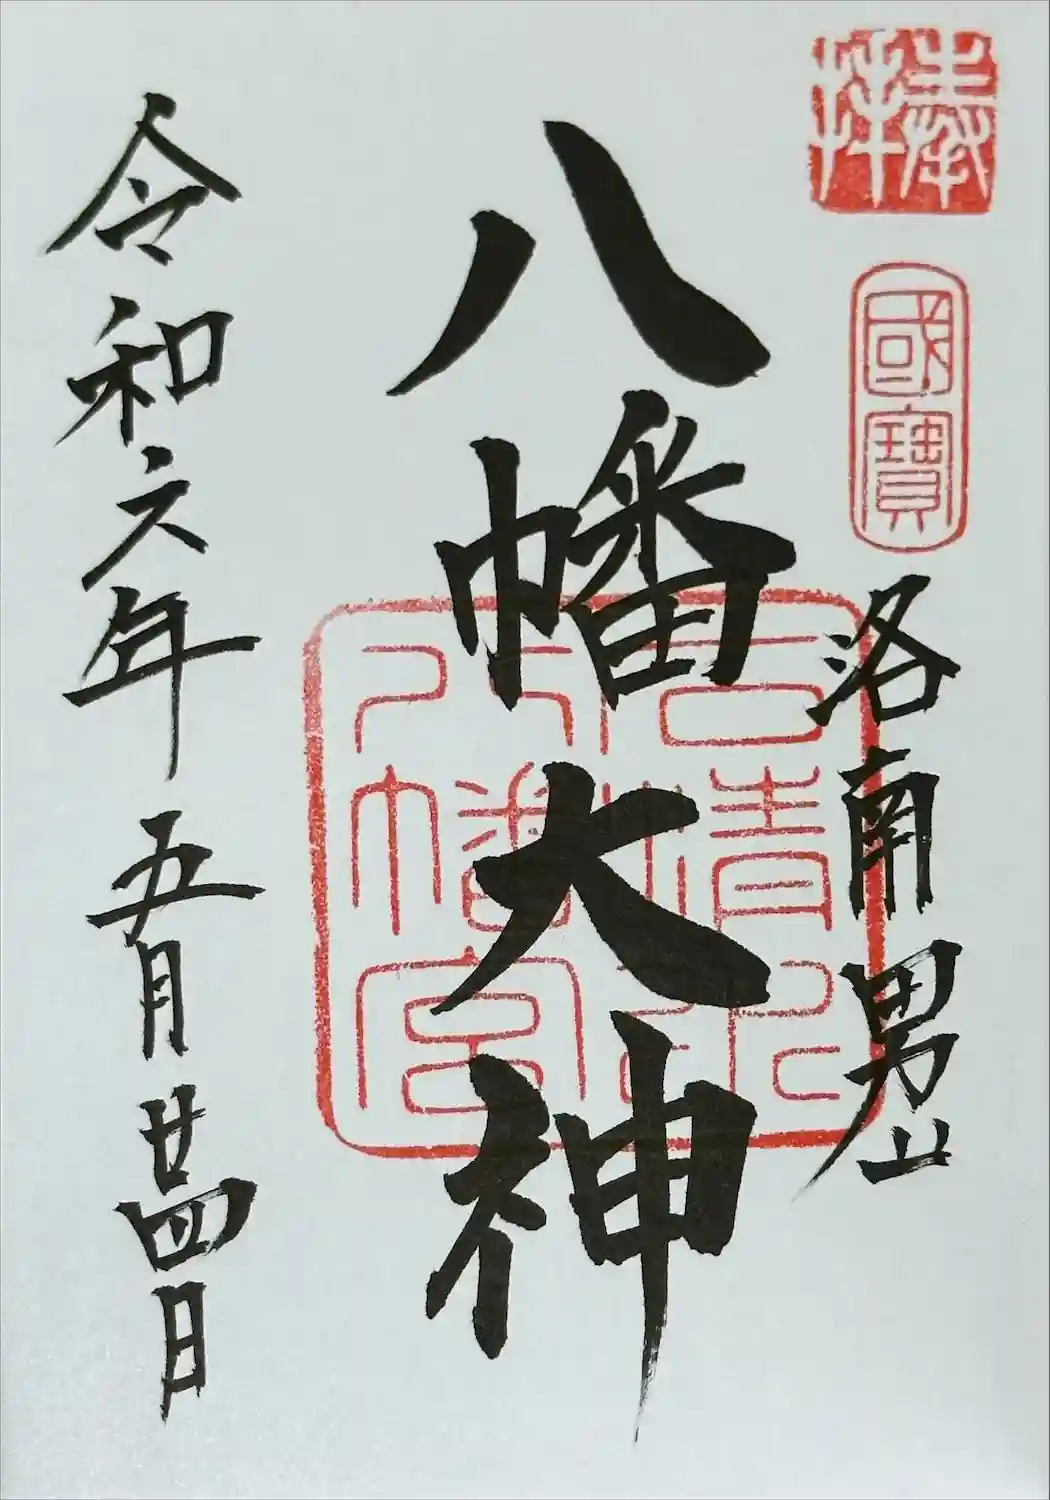 奉拝
國寶
洛南男山
八幡大神
石清水
八幡宮
令和六年五月廿四日